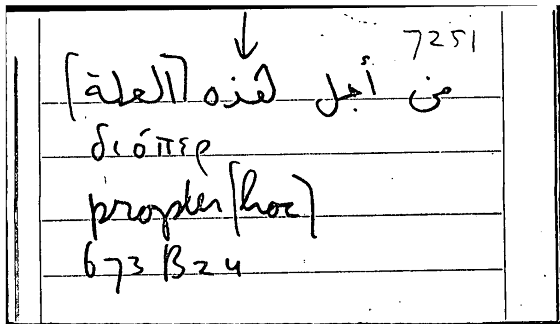 7251
من أجل هذه [العلة]
διόπερ
propter [hoc]
673 B 24